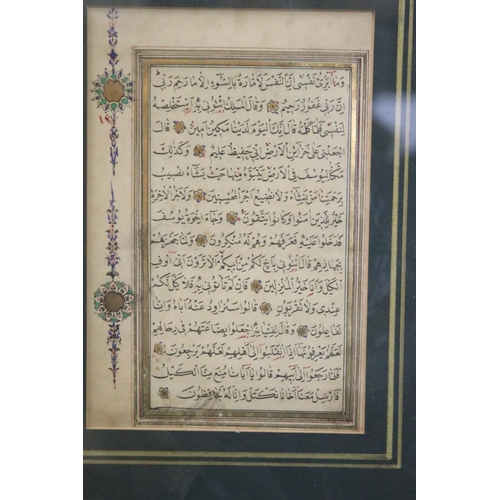 وَمَا أُبَرِّئُ نَفْسِي إِنَّ النَّفْسَ لَأَمَّارَةٌ بِالسُّوءِ إِلَّا مَا رَحِمَ رَبِّي
إِنَّ رَبِّي غَفُورٌ رَحِيمٌ وَقَالَ الْمَلِكُ ائْتُونِي بِهِ أَسْتَخْلِصْهُ
لِنَفْسِي فَلَمَّا كَلَّمَهُ قَالَ إِنَّكَ الْيَوْمَ لَدَيْنَا مَكِينٌ أَمِينٌ قَالَ
اجْعَلْنِي عَلَى خَزَائِنِ الْأَرْضِ إِنِّي حَفِيظٌ عَلِيمٌ وَكَذَلِكَ
مَكَّنَّا لِيُوسُفَ فِي الْأَرْضِ يَتَبَوَّأُ مِنْهَا حَيْثُ يَشَاءُ نُصِيبُ
بِرَحْمَتِنَا مَنْ نَشَاءُ وَلَا نُضِيعُ أَجْرَ الْمُحْسِنِينَ وَلَأَجْرُ الْآخِرَةِ
خَيْرٌ لِلَّذِينَ آمَنُوا وَكَانُوا يَتَّقُونَ وَجَاءَ إِخْوَةُ يُوسُفَ
فَدَخَلُوا عَلَيْهِ فَعَرَفَهُمْ وَهُمْ لَهُ مُنْكِرُونَ وَلَمَّا جَهَّزَهُمْ
بِجَهَازِهِمْ قَالَ ائْتُونِي بِأَخٍ لَكُمْ مِنْ أَبِيكُمْ أَلَا تَرَوْنَ أَنِّي أُوفِي
الْكَيْلَ وَأَنَا خَيْرُ الْمُنْزِلِينَ فَإِنْ لَمْ تَأْتُونِي بِهِ فَلَا كَيْلَ لَكُمْ
عِنْدِي وَلَا تَقْرَبُونِ قَالُوا سَنُرَاوِدُ عَنْهُ أَبَاهُ وَإِنَّا
لَفَاعِلُونَ وَقَالَ لِفِتْيَانِهِ اجْعَلُوا بِضَاعَتَهُمْ فِي رِحَالِهِمْ
لَعَلَّهُمْ يَعْرِفُونَهَا إِذَا انْقَلَبُوا إِلَى أَهْلِهِمْ لَعَلَّهُمْ يَرْجِعُونَ
فَلَمَّا رَجَعُوا إِلَى أَبِيهِمْ قَالُوا يَا أَبَانَا مُنِعَ مِنَّا الْكَيْلُ
فَأَرْسِلْ مَعَنَا أَخَانَا نَكْتَلْ وَإِنَّا لَهُ لَحَافِظُونَ